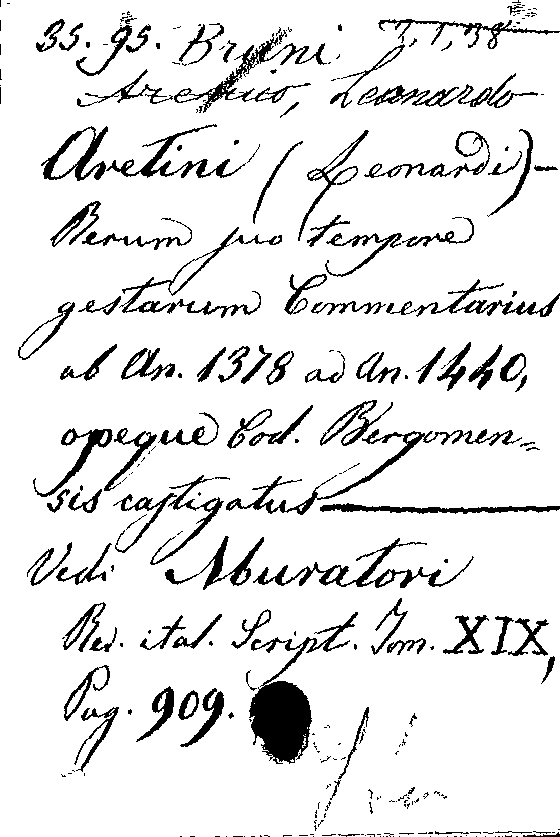 35.95. Bruni 3,1,38
Aretino, Leonardo
Aretini (Leonardi) —
Rerum suo tempore
gestarum Commentarius
ab An. 1378 ad An. 1440,
opeque Cod. Bergomen=
sis castigatus
Vedi Muratori
Rer. ital. Script. Tom. XIX,
Pag. 909.